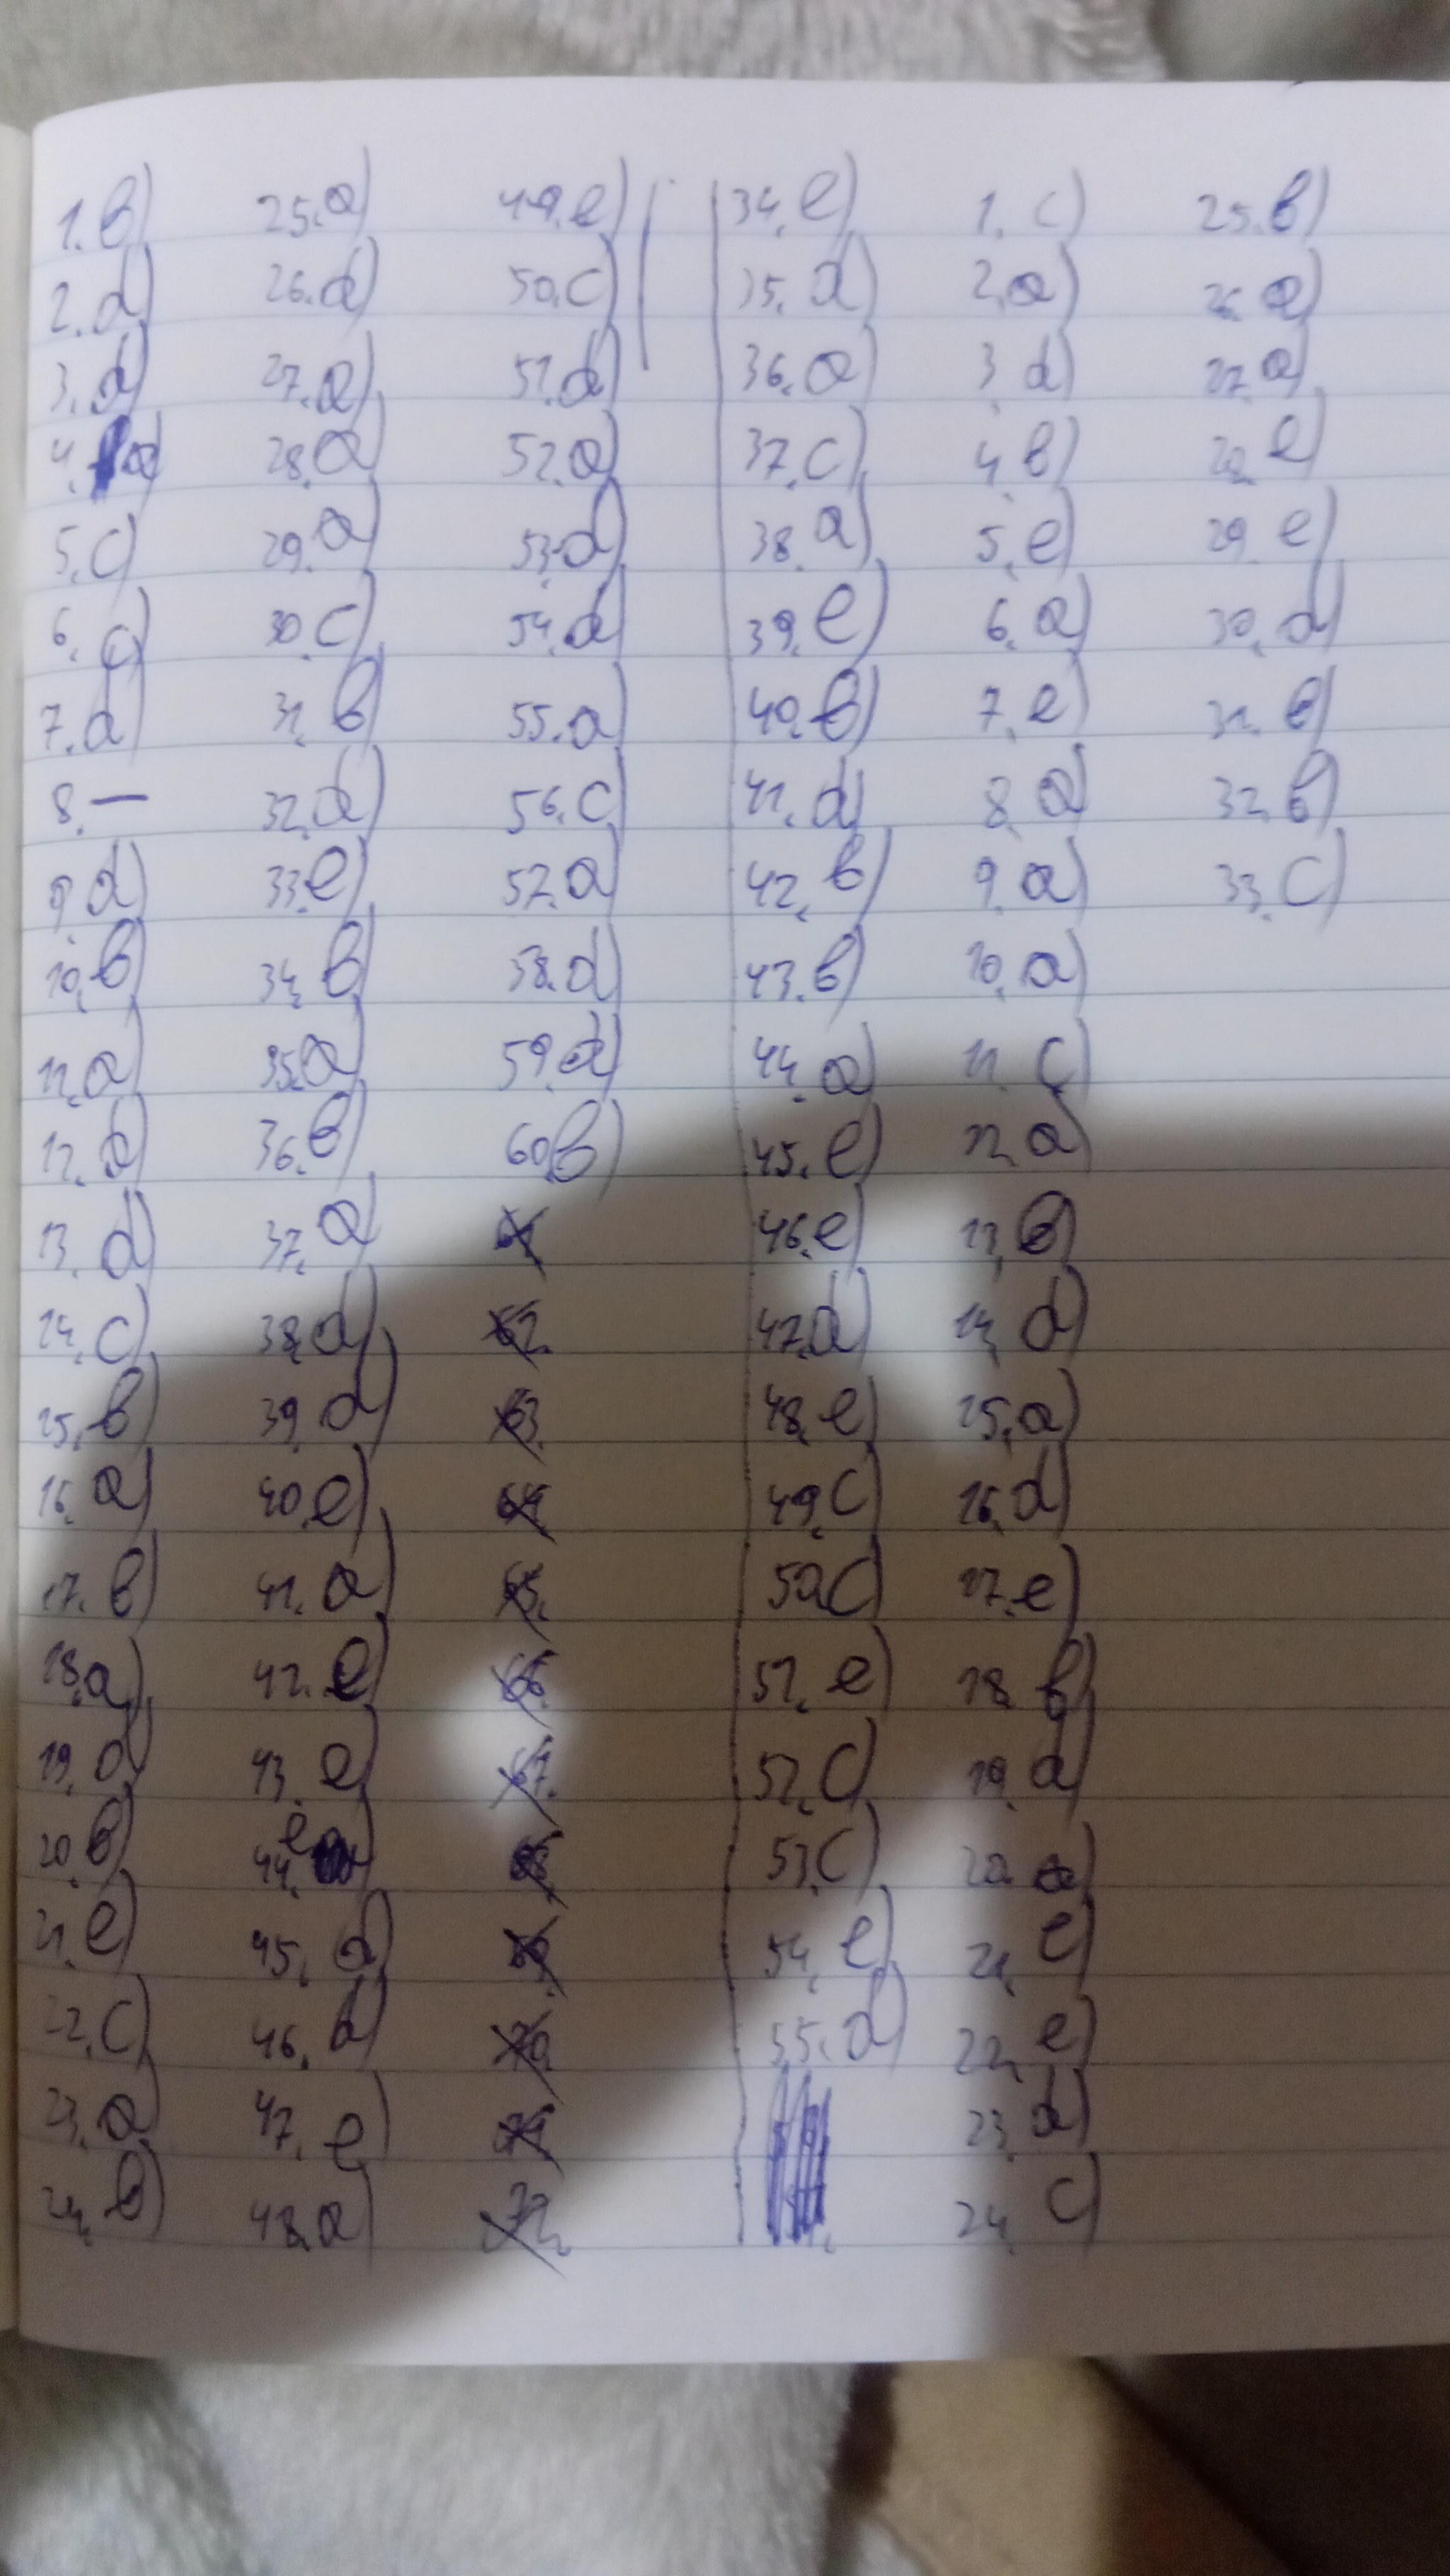 1. b) 25. a) 49. e) 34. e) 1. c) 25. b)
2. d) 26. d) 50. c) 35. d) 2. a) 26. a)
3. d) 27. a) 51. d) 36. a) 3. d) 27. a)
4. a 28. a) 52. a) 37. c) 4. b) 28. e)
5. c) 29. a) 53. d) 38. a) 5. e) 29. e)
6. c) 30. c) 54. d) 39. e) 6. a) 30. d)
7. d) 31. b) 55. a) 40. b) 7. e) 31. e)
8. — 32. d) 56. c) 41. d) 8. a) 32. b)
9. d) 33. e) 57. a) 42. b) 9. a) 33. c)
10. b) 34. b) 58. d) 43. b) 10. a)
11. a) 35. a) 59. d) 44. a) 11. c)
12. d) 36. b) 60. b) 45. e) 12. a)
13. d) 37. a) 61 46. e) 13. b)
14. c) 38. d) 62. 47. d) 14. d)
15. b) 39. d) 63. 48. e) 15. a)
16. a) 40. e) 64. 49. c) 16. d)
17. b) 41. a) 65. 50. c) 17. e)
18. a) 42. e) 66. 51. e) 18. b)
19. d) 43. e) 67. 52. c) 19. d)
20. b) 44. e 68. 53. c) 20.
21. e) 45. d) 69. 54. e) 21. e)
22. c) 46. d) 70. 55. d) 22. e)
23. a) 47. e) 71. 23. d)
24. b) 48. a) 72. 24. c)